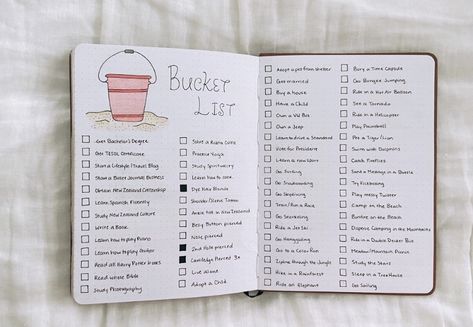 Bucket
List
Get Bachelor's Degree
Get TESOL Certificate
Start a Lifestyle/Travel Blog
Start a Bullet Journal Business
Obtain New Zealand Citizenship
Learn Spanish Fluently
Study New Zealand Culture
Write a Book
Learn how to play Piano
Learn how to play Guitar
Read all Harry Potter Books
Read whole Bible
Study Photography
Start a
Practice Yoga
Study Spirituality
Learn how to cook
Dye Hair Blonde
Shoulder/Sleeve Tattoo
Ankle Tat in New Zealand
Belly Button pierced
Nose pierced
2nd Hole pierced
Cartilage Pierced 3x
Live Alone
Adopt a Child
Adopt a pet from shelter
Get married
Buy a house
Have a Child
Own a VW Bus
Own a Jeep
Learn to drive a Standard
Vote for President
Learn a new
Go Surfing
Go Snowboarding
Go Skydiving
Train/Run a Race
Go Snorkeling
Ride a Jet Ski
Go Hanggliding
Go to a Color Run
Zipline through the Jungle
Hike in a Rainforest
Ride an Elephant
Bury a Time Capsule
Go Bungee Jumping
Ride in a Hot Air Balloon
See a Tornado
Ride in a Helicopter
Play Paintball
Pet a Tiger/Lion
Swim with Dolphins
Catch Fireflies
Send a Message in a Bottle
Try Kickboxing
Play messy Twister
Camp on the Beach
Bonfire on the Beach
Disperse Camping in the Mountains
Ride in a Double Decker Bus
Meadow/Mountain Picnic
Study the Stars
Sleep in a Tree House
Go Sailing